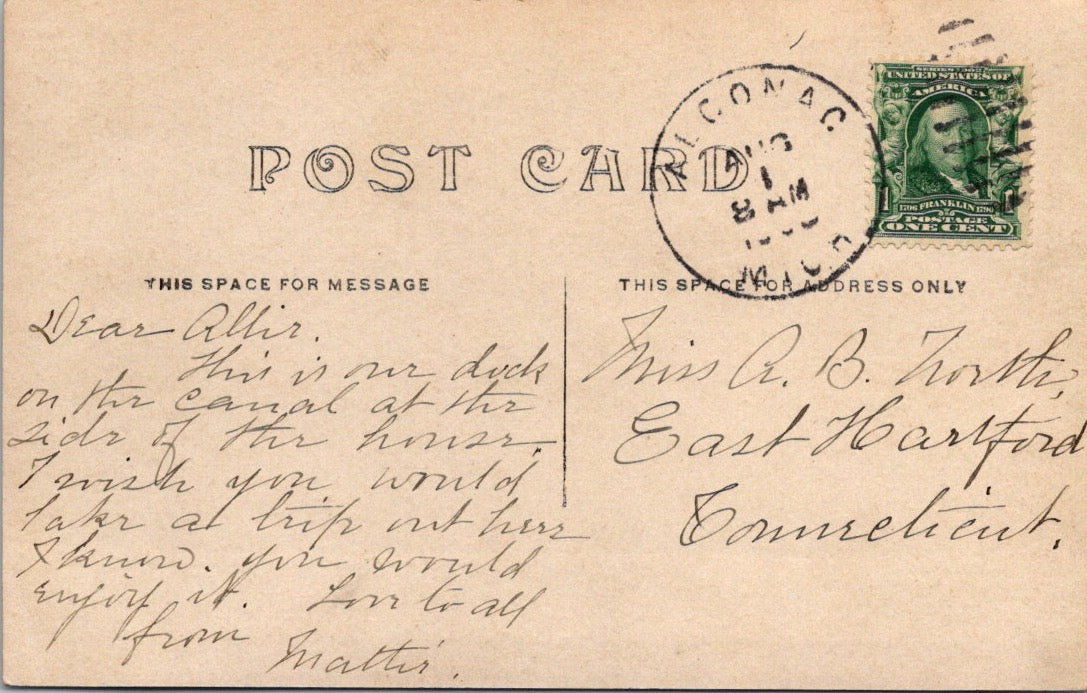 POST CARD
ALGONAC
AUG
1
8 AM
MICH.
SERIES 1902
UNITED STATES OF
AMERICA
1 1
1706 FRANKLIN 1790
POSTAGE
ONE CENT
THIS SPACE FOR MESSAGE
Dear Allie.
This is our dock
on the canal at the
side of the house.
I wish you would
take a trip out here
I know. you would
enjoy it. Love to all
from
Mattie.
THIS SPACE FOR ADDRESS ONLY
Miss A. B. North,
East Hartford
Connecticut.